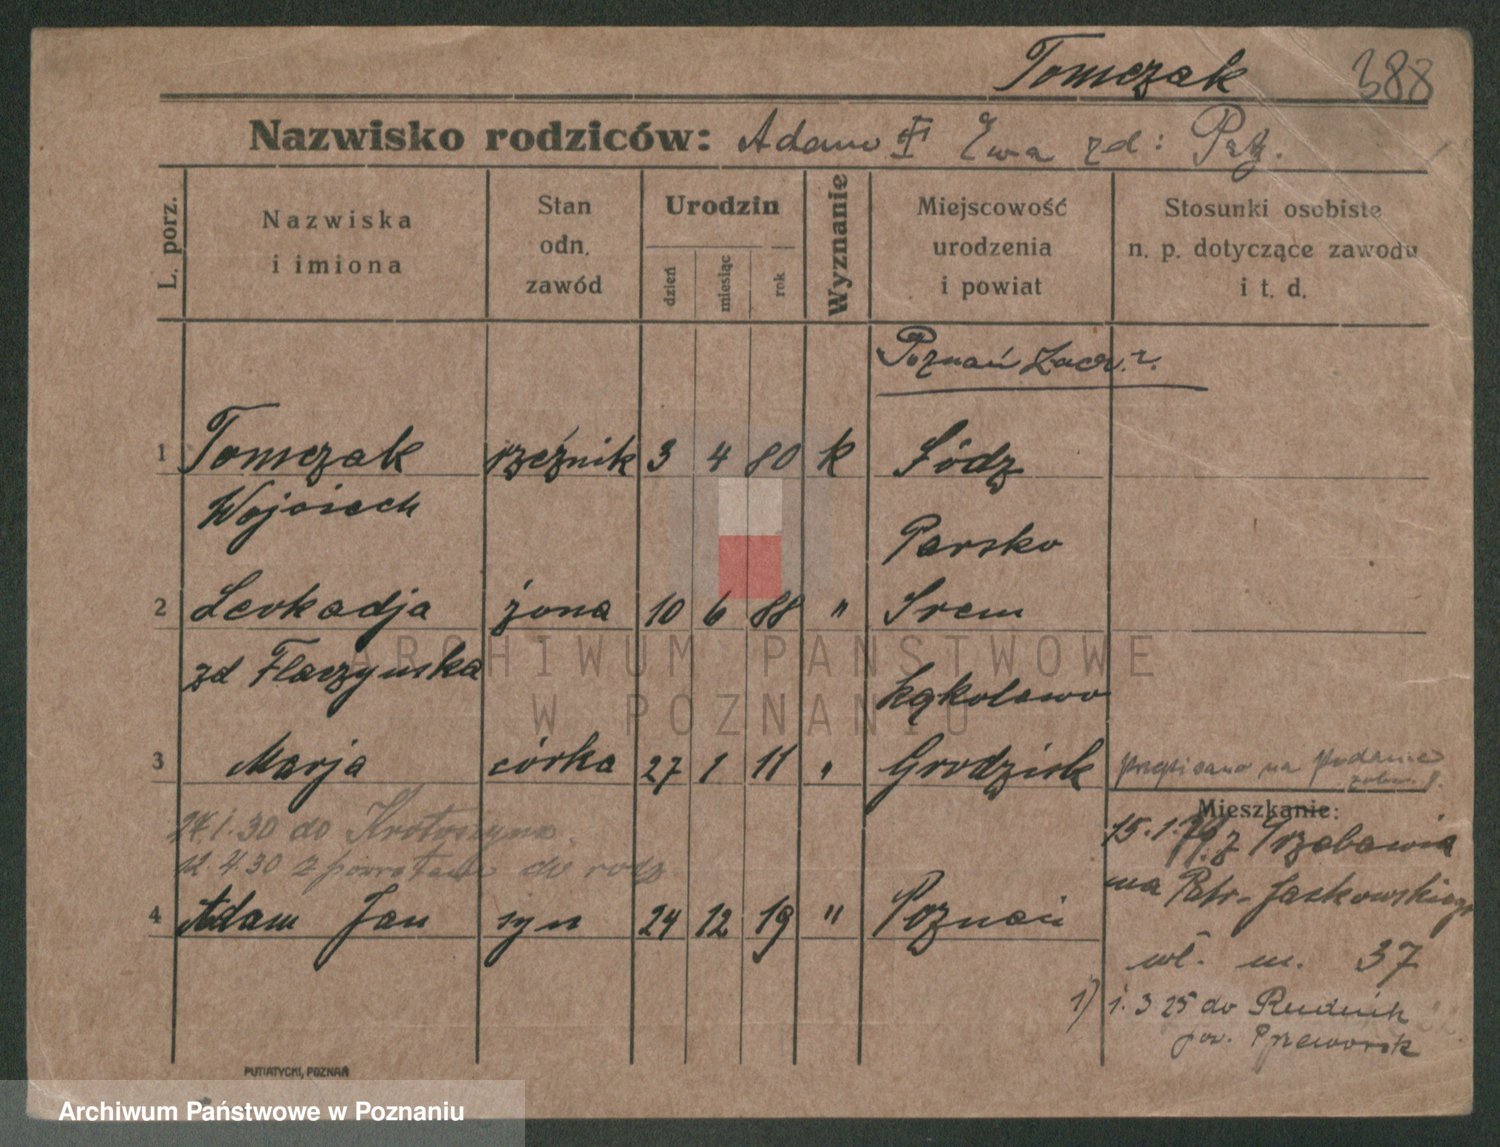 Tomczak 388
Nazwisko rodziców: Adam Ewa zd:
L. porz.
Nazwiska
i imiona
Stan
odn.
zawód
Urodzin
dzień
miesiąc
rok
Wyznanie
Miejscowość
urodzenia
i powiat
Stosunki osobiste
n. p. dotyczące zawodu
i t. d.
Poznań
1 Tomczak rzeźnik 3 4 80 k Łódz
Wojciech
Parsko
2 Leokadja żona 10 6 88 " Śrem
zd Flaczyńska
Kąkolewo
3 Marja córka 27 1 11 " Grodzisk przepisano na podanie
Mieszkanie:
1.30 do Krotoszyna
15.1. z
12.4.30 z powrotem do rodz.
na Jackowskiego
4 Adam Jan syn 24 12 19 " Poznań
wł. m. 37
1) 1.3 25 do Rudnik
pow. Przeworsk
PUTIATYCKI, POZNAŃ
ARCHIWUM PAŃSTWOWE
W POZNANIU
Archiwum Państwowe w Poznaniu